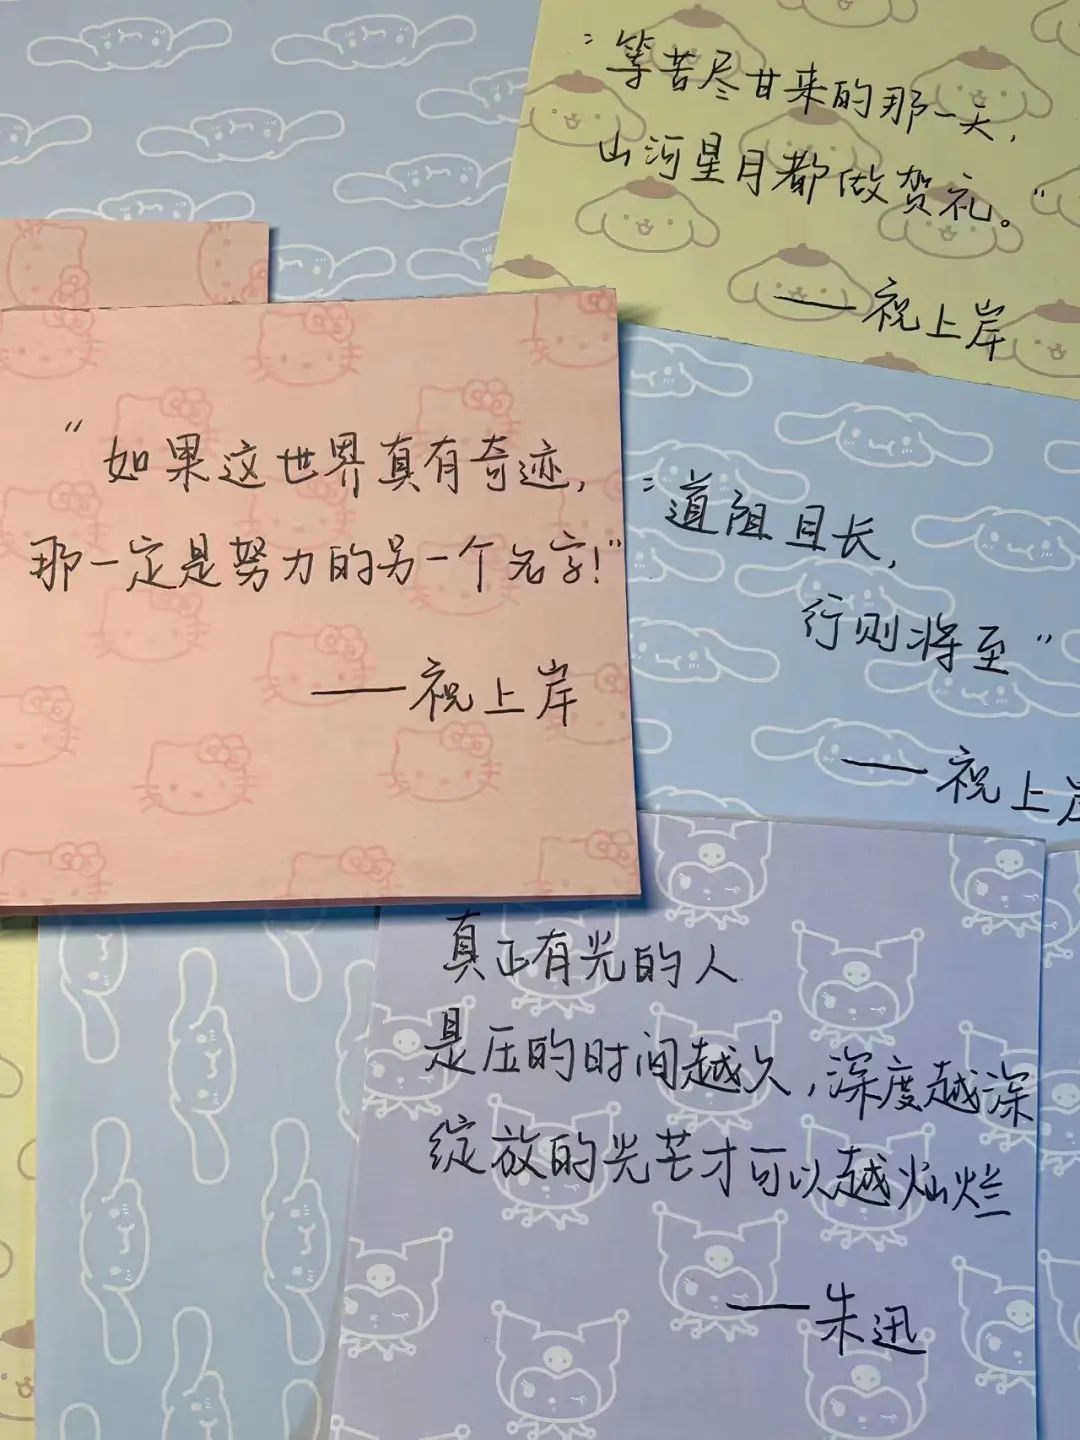 "等苦尽甘来的那一天,
山河星月都做贺礼。"
——祝上岸
"如果这世界真有奇迹,
那一定是努力的另一个名字!"
——祝上岸
"道阻且长,
行则将至"
——祝上岸
真正有光的人
是压的时间越久,深度越深
绽放的光芒才可以越灿烂
——朱迅